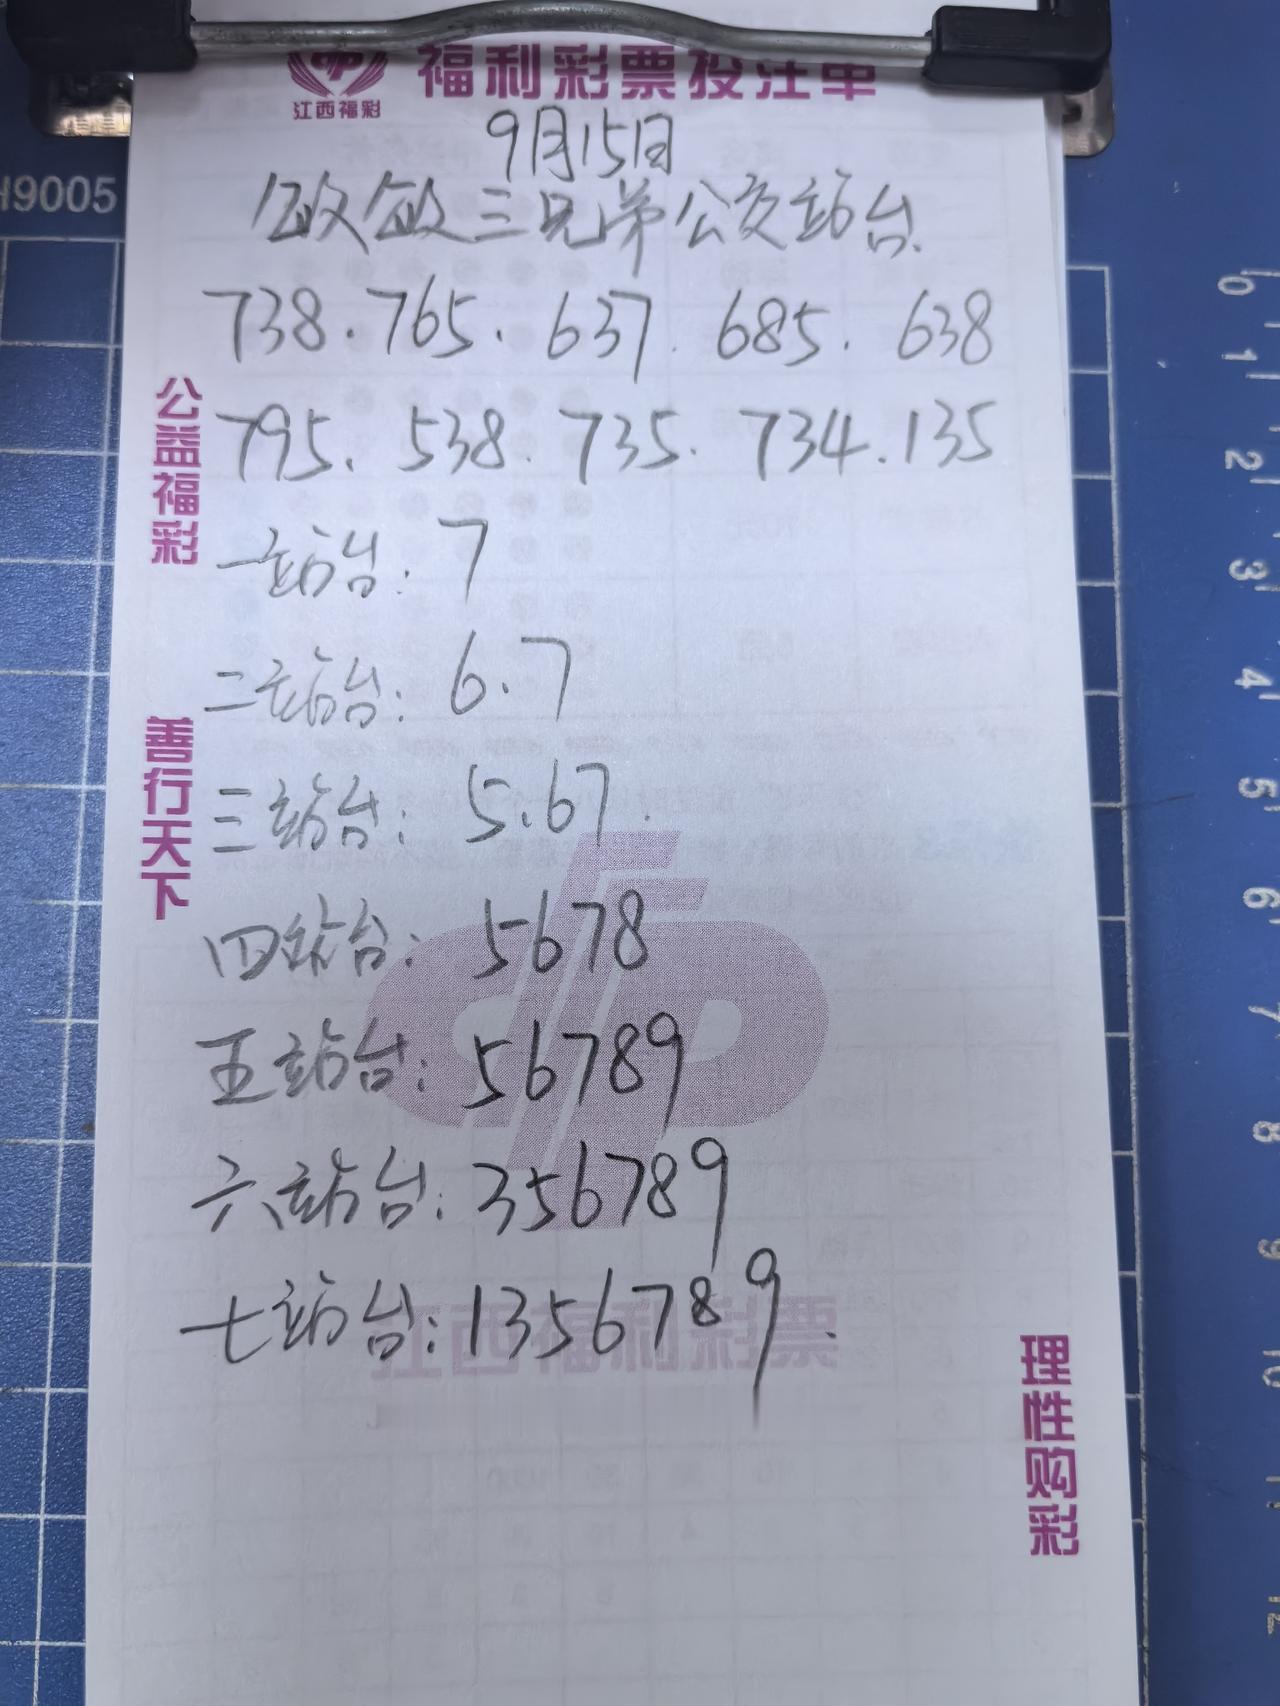 福利彩票投注单
江西福彩
9月15日
敏敏三兄弟公交站台
H9005
738.765.637.685.638
795.538.735.734.135
公益福彩
一站台:7
二站台:6.7
善行天下
三站台:5.67.
四站台:5678
五站台:56789
六站台:356789
七站台:1356789.
江西福利彩票
理性购彩
0
1
2
3
4
5
6
7
8
9
10
11
12